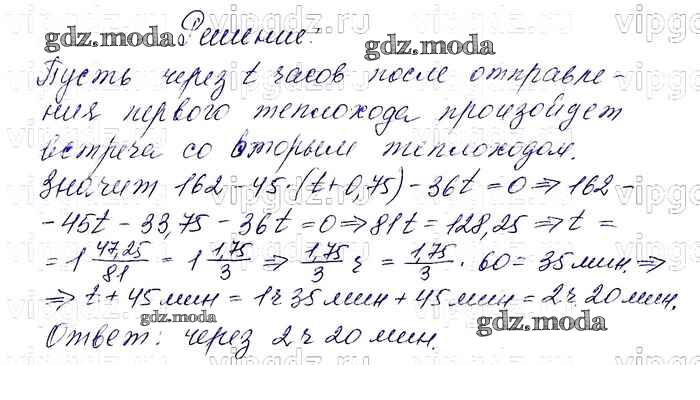 Решение:
Пусть через t часов после отправле-
ния первого теплохода произойдет
встреча со вторым теплоходом.
Значит 162 - 45·(t + 0,75) - 36t = 0 ⇒ 162 -
- 45t - 33,75 - 36t = 0 ⇒ 81t = 128,25 ⇒ t =
= 1 47,25/81 = 1 1,75/3 ⇒ 1,75/3 ч = 1,75/3 · 60 = 35 мин. ⇒
⇒ t + 45 мин = 1ч 35 мин + 45 мин = 2ч. 20 мин.
Ответ: через 2ч 20 мин.
gdz.moda
gdz.moda
gdz.moda
gdz.moda
gdz.moda
vipgdz.ru